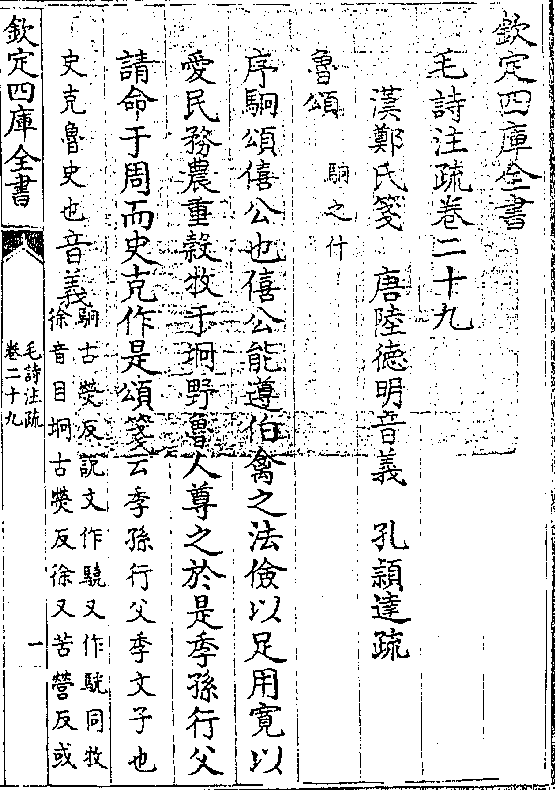 欽定四庫全書
毛詩注疏卷二十九
漢鄭氏箋 唐陸德明音義 孔穎達疏
魯頌 駉之什
序駉頌僖公也僖公能遵伯禽之法儉以足用寬以
愛民務農重穀牧于坰野魯人尊之於是季孫行父
請命于周而史克作是頌箋云季孫行父季文子也
史克魯史也音義
駉古熒反說文作驍又作駫同牧
徐音目坰古熒反徐又苦營反或
欽定四庫全書
毛詩注疏
卷二十九
一